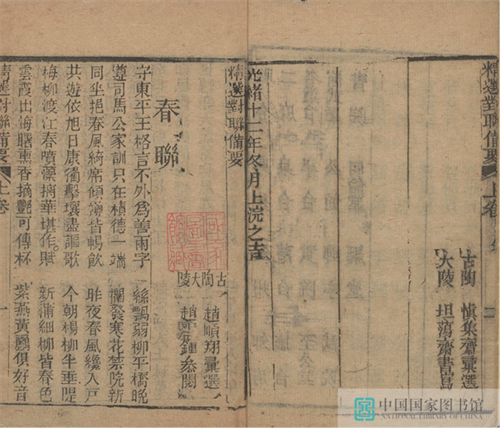 精選對聯備要 上卷
古陶 慎集齋彙選
大陵 坦蕩齋書
光緒十二年冬月上浣之吉
精選對聯備要
古陶 趙順翔彙選
大陵 趙 鍾叅閱
春聯
守東平王格言不外為善兩字 絲鶯弱柳平橋晚
遵司馬公家訓只在積德一端 欄發寒花禁院新
同坐挹春風綺席傾 皆暢飲 昨夜春風纔入戶
共遊依旭日康衢擊壤盡謳歌 今朝楊柳半垂堤
梅柳渡江春噴藻摛華堪作賦 新蒲細柳皆春色
雲霞出海曙熏香摘艷可傳杯 紫燕黃鸝俱好音
精選對聯備要 上卷 一
中国国家图书馆
NATIONAL LIBRARY OF CHINA